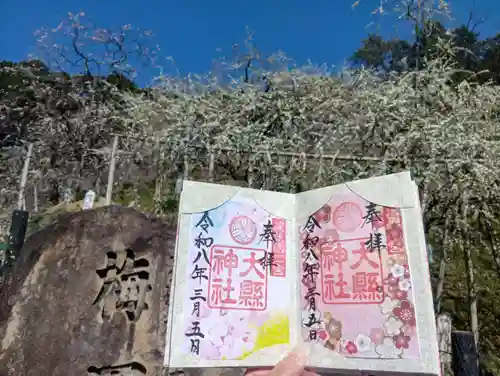 梅
園
奉拝
大縣
神社
令和八年三月五日
奉拝
大縣
神社
令和八年三月五日